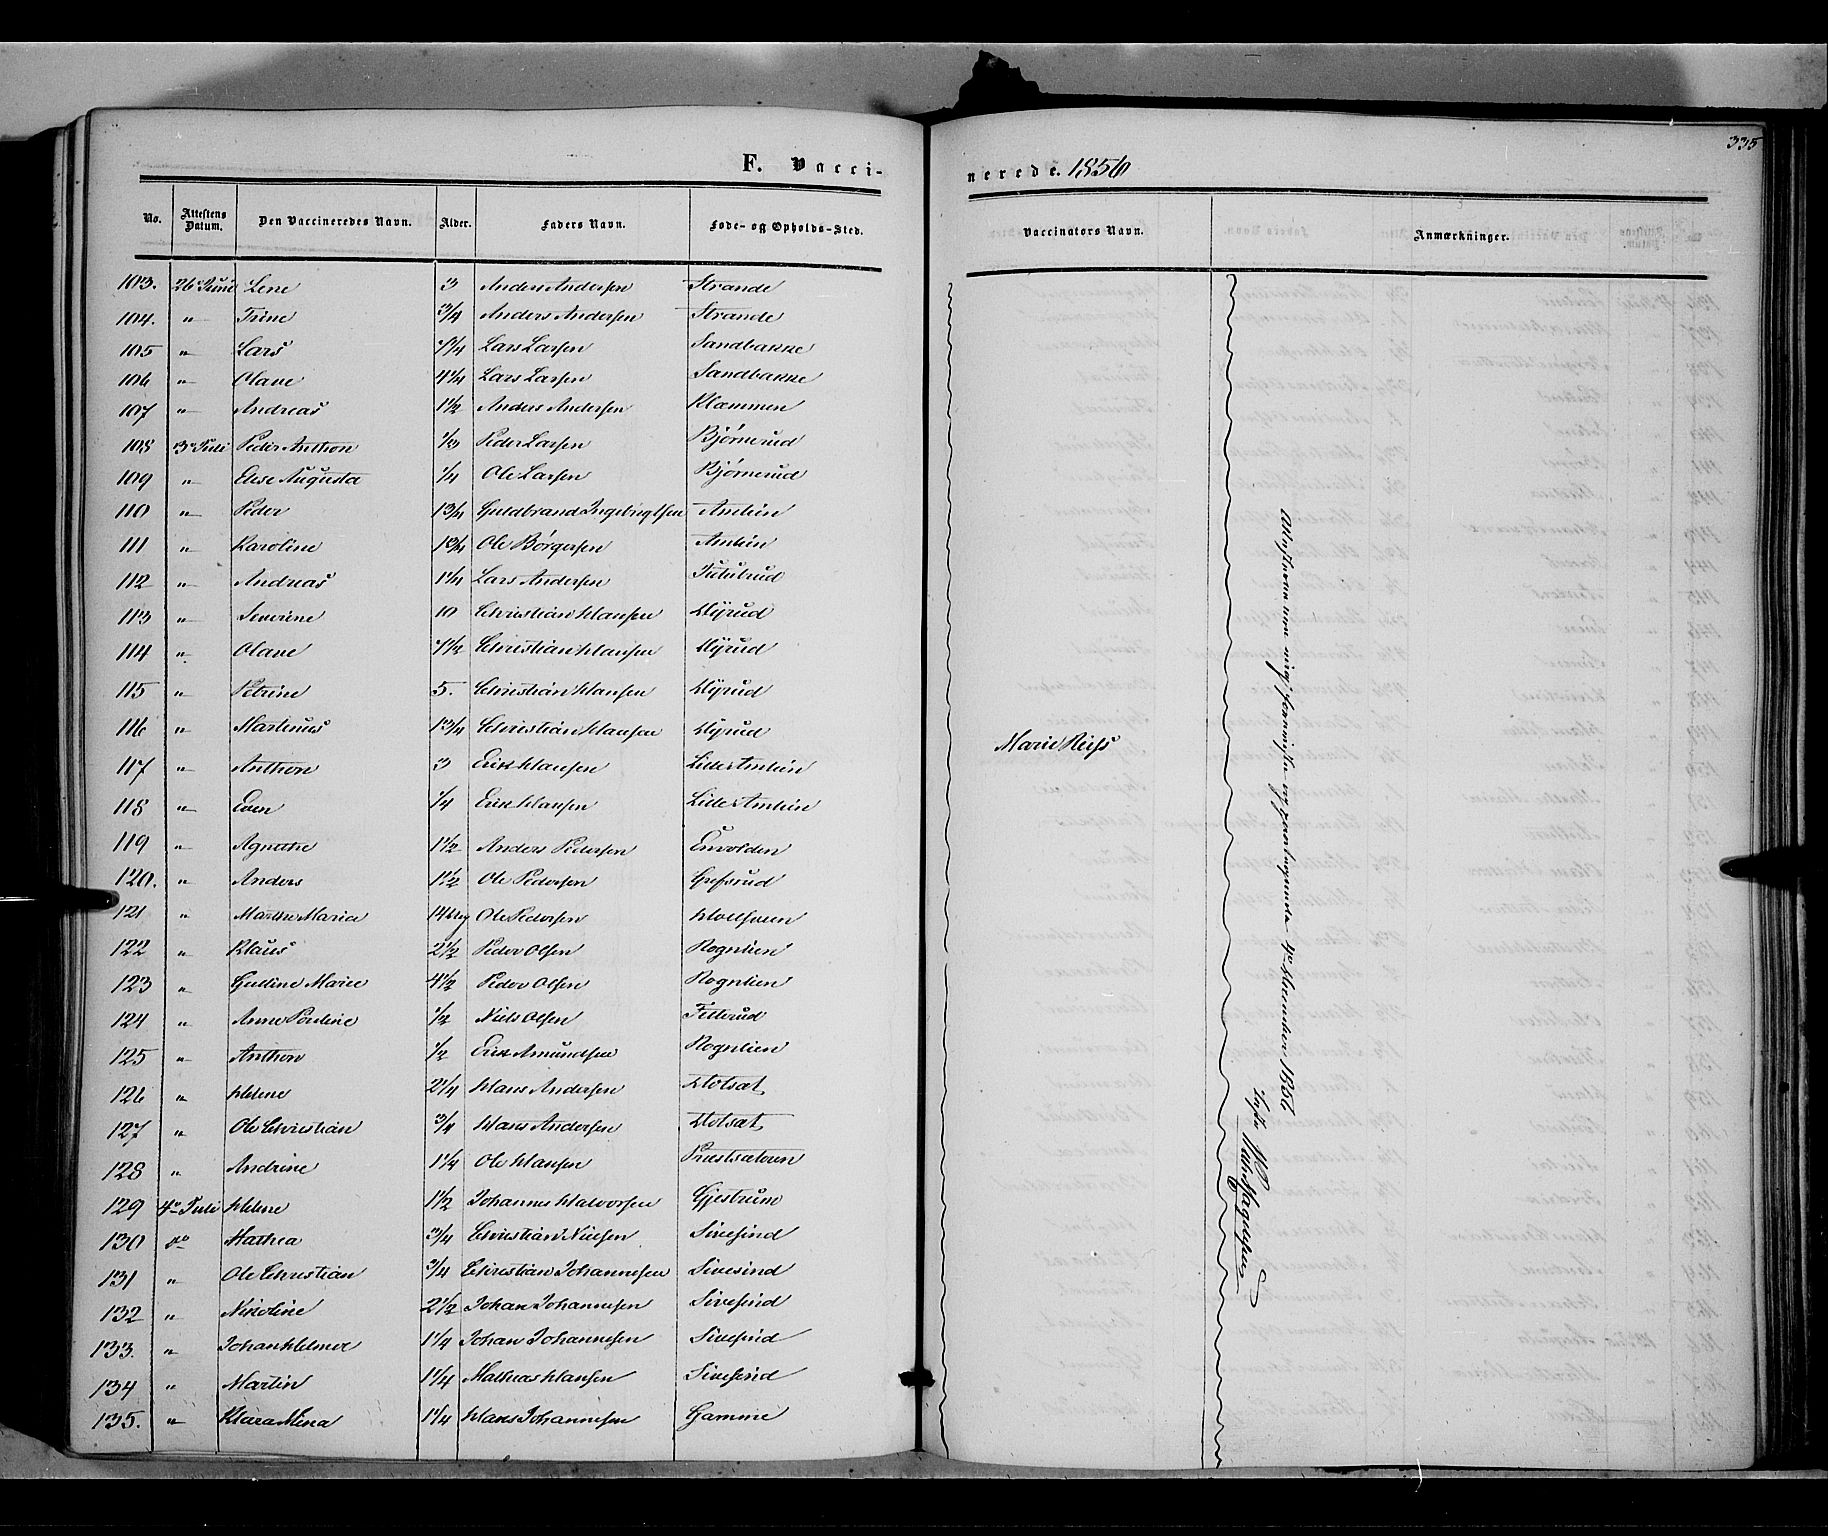 F. Vacci-
nerede. 1856
335
No. Attestens Datum. Den Vaccineredes Navn. Alder. Faders Navn. Føde- og Opholds-Sted.
Vaccinators Navn. Anmærkninger.
103. 26 Juni Lene 3 Anders Andersen Strande
104. " Trine 3/4 Anders Andersen Strande
105 " Lars Lars Larsen Sandbakke
106 " Olave 4 1/4 Lars Larsen Sandbakke
107 " Andreas 1 1/2 Anders Andersen Klæmmen
108 3 Juli Peder Anthon 1/3 Peder Larsen Bjørnerud
109 " Elise Augusta 1/4 Ole Larsen Bjørnerud
110 " Peder 1 3/4 Guldbrand Ingebrigtsen Amlien
111 " Karoline 1 3/4 Ole Børgersen Amlien
112 " Andreas 1 1/4 Lars Andersen
113 " Severine 10 Christian Hansen Myrud
114 " Olave 7 1/2 Christian Hansen Myrud
115 " Petrine 5. Christian Hansen Myrud
116 " Martinus 1 3/4 Christian Hansen Myrud
117 " Anthon 3 Erik Hansen Lille Amlien
118 " Even 1/4 Erik Hansen Lille Amlien
119 " Agnethe 1 1/2 Anders Pedersen Envolden
120. " Anders 1 1/2 Ole Pedersen Grefsrud
121 " Marthe Maria 14 Ole Pedersen
122 " Klaus 2 1/2 Peder Olsen Rognlien
123 " Guline Marie 4 1/2 Peder Olsen Rognlien
124 " Anne Pouline 1/2 Niels Olsen Fellerud
125 " Anthon 1/2 Erik Amundsen Rognlien
126 " Helene 2 1/4 Hans Andersen
127 " Ole Christian 3/4 Hans Andersen
128 " Andrine 1 1/4 Ole Hansen Præstsætern
129 4 Juli Helene 1 1/2 Johannes Halvorsen Gjestrum
130 do Mathea 3/4 Christian Nielsen Sivesind
131 " Ole Christian 3/4 Christian Johannesen Sivesind
132 " Nikoline 2 1/2 Johan Johannesen Sivesind
133. " Johan Helmer 1 1/4 Johan Johannesen Sivesind
134 " Martin 1 1/4 Mathias Hansen Sivesind
135. " Klara Mina 1 1/4 Hans Johannesen Gamme
Marie Reiss